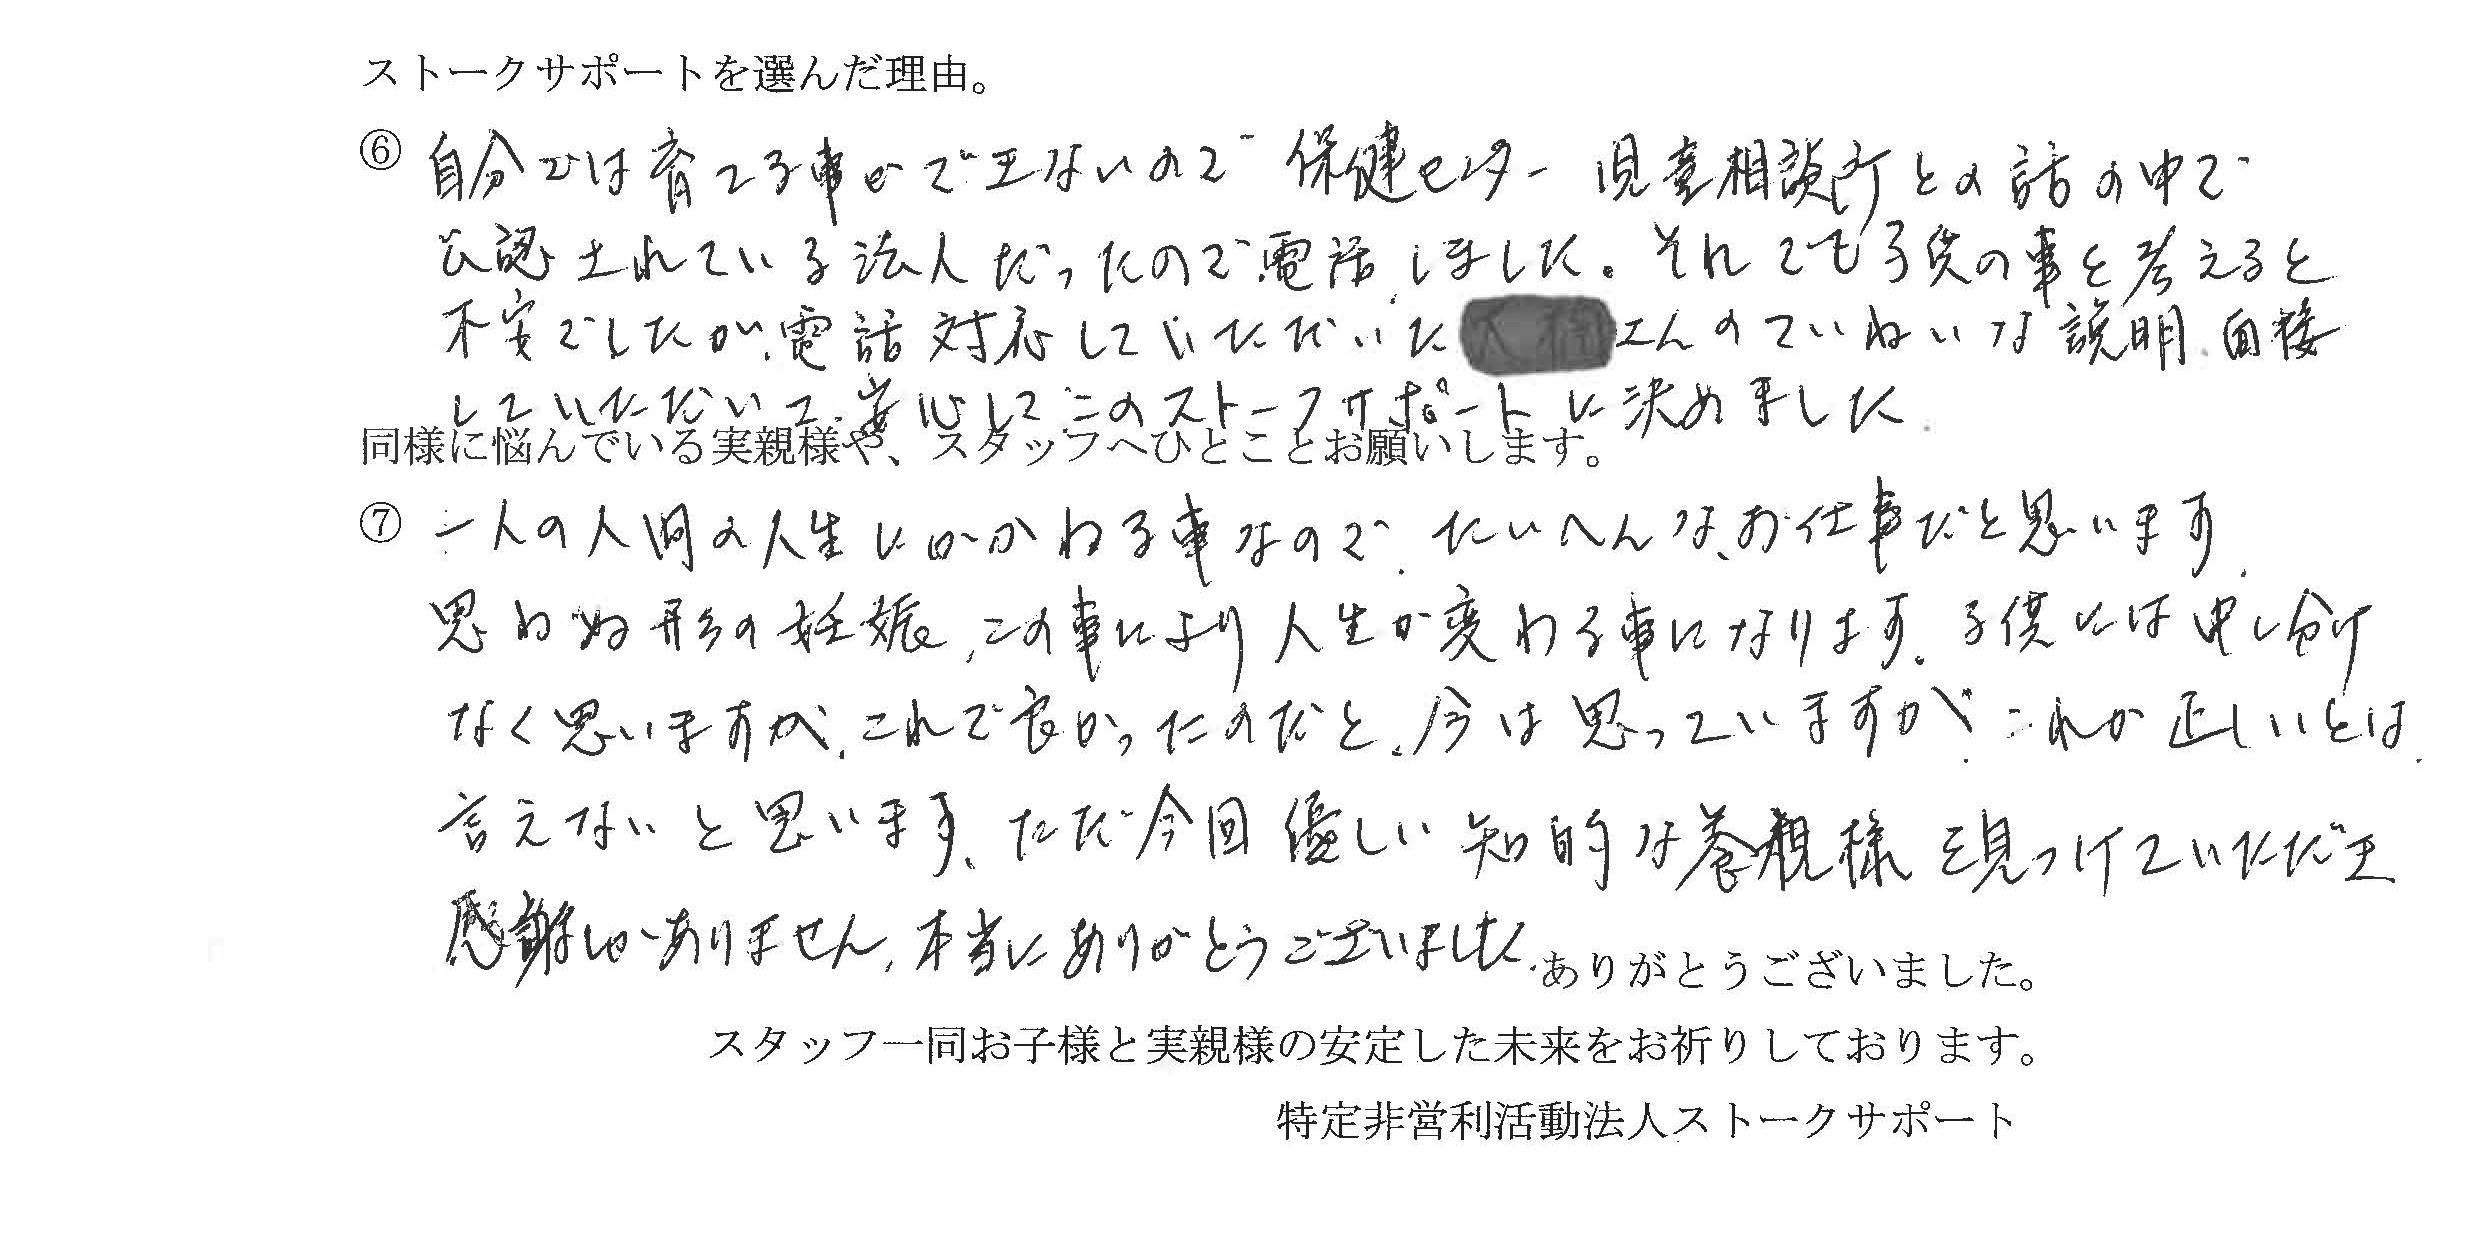 ストークサポートを選んだ理由。
⑥ 自分では育てる事ができないので 保健センター 児童相談所との話の中で
公認されている法人だったので電話しました。それでも子供の事を考えると
不安でしたが、電話対応していただいた さんのていねいな説明、面接
していただいて、安心してこのストークサポートに決めました.
同様に悩んでいる実親様や、スタッフへひとことお願いします。
⑦ 一人の人間の人生にかかわる事なので、たいへんな、お仕事だと思います.
思わぬ形の妊娠、この事により人生が変わる事になります。子供には申し分け
なく思いますが、これで良かったのだと、今は思っていますが、これが正しいとは、
言えないと思います、ただ今回優しい知的な養親様を見つけていただき
感謝しかありません、本当にありがとうございました.
ありがとうございました。
スタッフ一同お子様と実親様の安定した未来をお祈りしております。
特定非営利活動法人ストークサポート